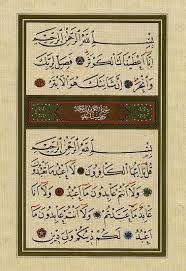 بِسْمِ اللهِ الرَّحْمٰنِ الرَّحِيمِ
إِنَّا أَعْطَيْنَاكَ الْكَوْثَرَ فَصَلِّ لِرَبِّكَ
وَانْحَرْ إِنَّ شَانِئَكَ هُوَ الْأَبْتَرُ
بِسْمِ اللهِ الرَّحْمٰنِ الرَّحِيمِ
قُلْ يَا أَيُّهَا الْكَافِرُونَ لَا أَعْبُدُ مَا
تَعْبُدُونَ وَلَا أَنْتُمْ عَابِدُونَ مَا أَعْبُدُ وَلَا أَنَا
عَابِدٌ مَا عَبَدْتُمْ وَلَا أَنْتُمْ عَابِدُونَ مَا
أَعْبُدُ لَكُمْ دِينُكُمْ وَلِيَ دِينِ